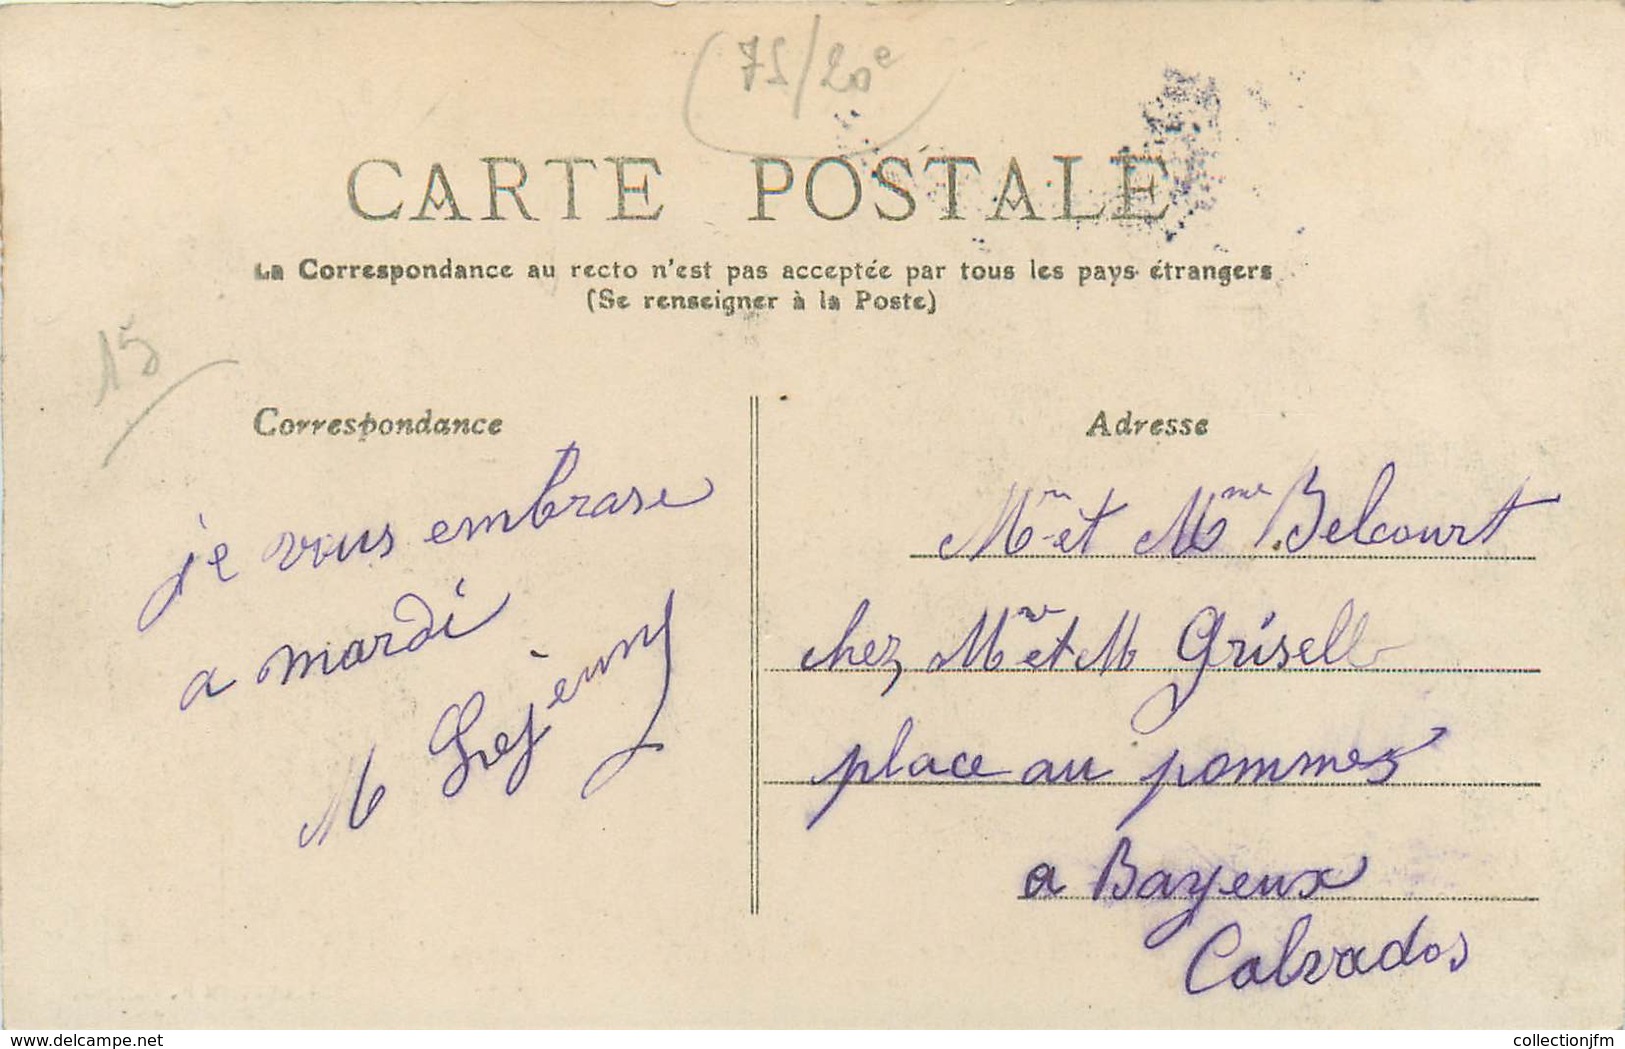 (75/20e
CARTE POSTALE
La Correspondance au recto n'est pas acceptée par tous les pays étrangers
(Se renseigner à la Poste)
15
Correspondance
je vous embrase
a mardi
M Lejeune
Adresse
Mr et Mme Belcourt
chez Mr et M Grisell
place au pommes
a Bayeux
Calvados
www.delcampe.net
collectionjfm